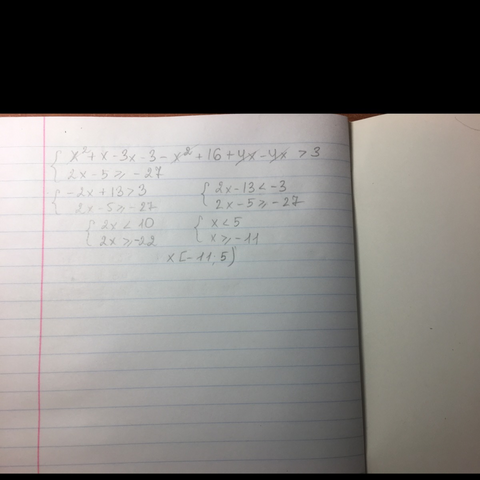 { x² + x - 3x - 3 - x² + 16 + 4x - 4x > 3
2x - 5 ≥ -27
{ -2x + 13 > 3 { 2x - 13 < -3
2x - 5 ≥ -27 2x - 5 ≥ -27
{ 2x < 10 { x < 5
2x ≥ -22 x ≥ -11
x [-11; 5)